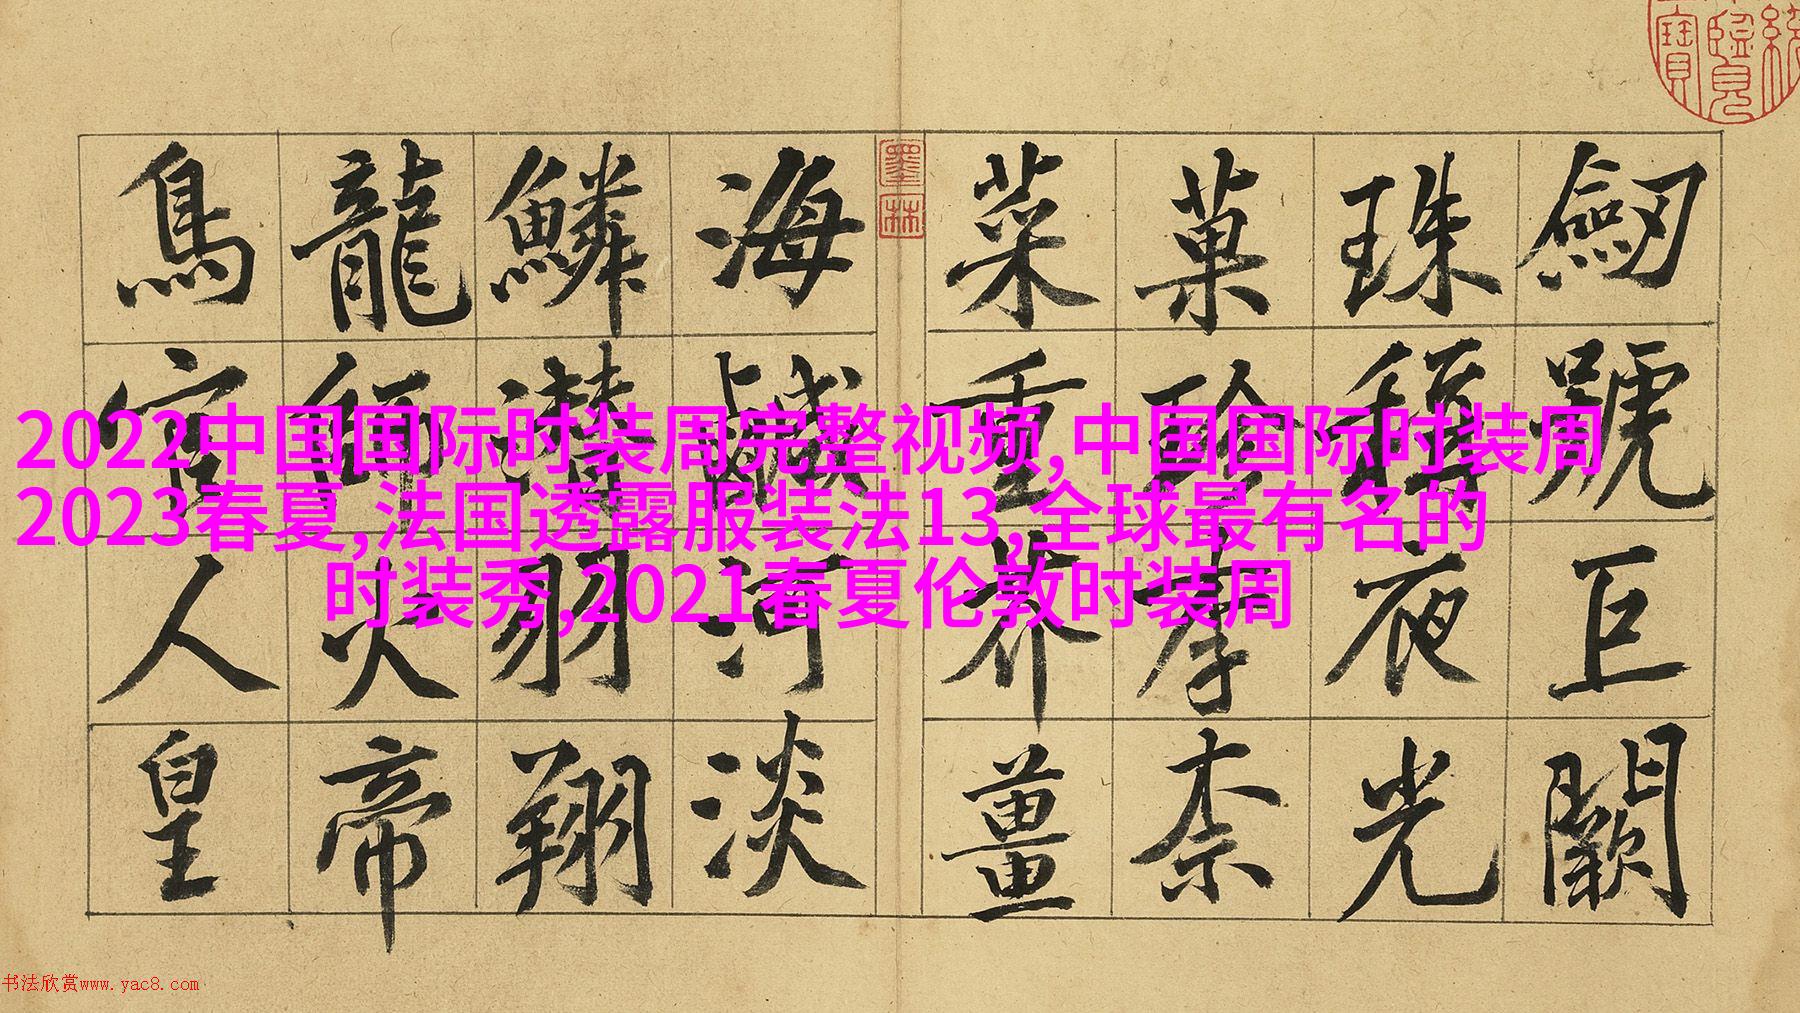 劍號巨闕
珠稱夜光
菓珍李柰
菜重芥薑
墨林
海鹹河淡
鱗潛羽翔
龍師火帝
鳥官人皇
2022中国国际时装周完整视频,中国国际时装周
2023春夏,法国透露服装法13,全球最有名的
时装秀,2021春夏伦敦时装周
书法欣赏www.yac8.com